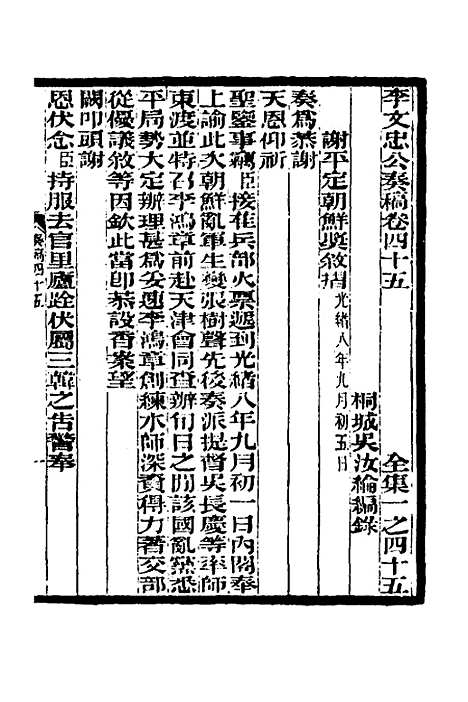 李文忠公奏稿卷四十五　全集一之四十五
桐城吳汝綸編錄
謝平定朝鮮獎敘摺光緒八年九月初五日
奏爲恭謝
天恩仰祈
聖鑒事竊臣接准兵部火票遞到光緒八年九月初一日內閣奉
上諭此次朝鮮亂軍生變張樹聲先後奏派提督吳長慶等率師
東渡並特召李鴻章前赴天津會同查辦旬日之閒該國亂黨悉
平局勢大定辦理甚爲妥速李鴻章創練水師深資得力著交部
從優議敘等因欽此當卽恭設香案望
闕叩頭謝
恩伏念臣持服去官里廬跧伏屬三韓之告警奉
奏稿四十五
一